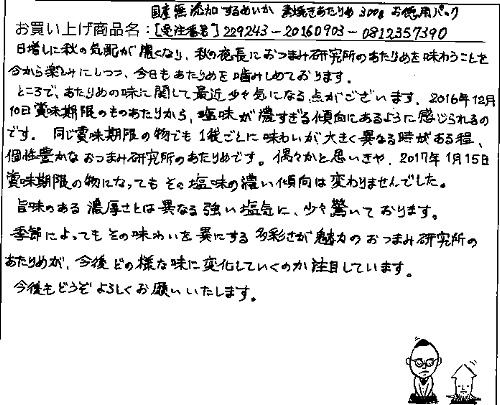 国産無添加するめいか 素焼きあたりめ 300g お徳用パック
お買い上げ商品名：[受注番号] 229243-20160903-0812357390
日増しに秋の気配が濃くなり、秋の夜長におつまみ研究所のあたりめを味わうことを
今から楽しみにしつつ、今日もあたりめを噛みしめております。
ところで、あたりめの味に関して最近少々気になる点がございます。2016年12月
10日賞味期限のものあたりから、塩味が濃すぎる傾向にあるように感じられるので
す。同じ賞味期限の物でも1袋ごとに味わいが大きく異なる時がある程、
個性豊かなおつまみ研究所のあたりめです。偶々かと思いきや、2017年1月15日
賞味期限の物になってもその塩味の濃い傾向は変わりませんでした。
旨味のある濃厚さとは異なる強い塩気に、少々驚いております。
季節によってもその味わいを異にする多彩さが魅力のおつまみ研究所の
あたりめが、今後どの様な味に変化していくのか注目しています。
今後もどうぞよろしくお願いいたします。